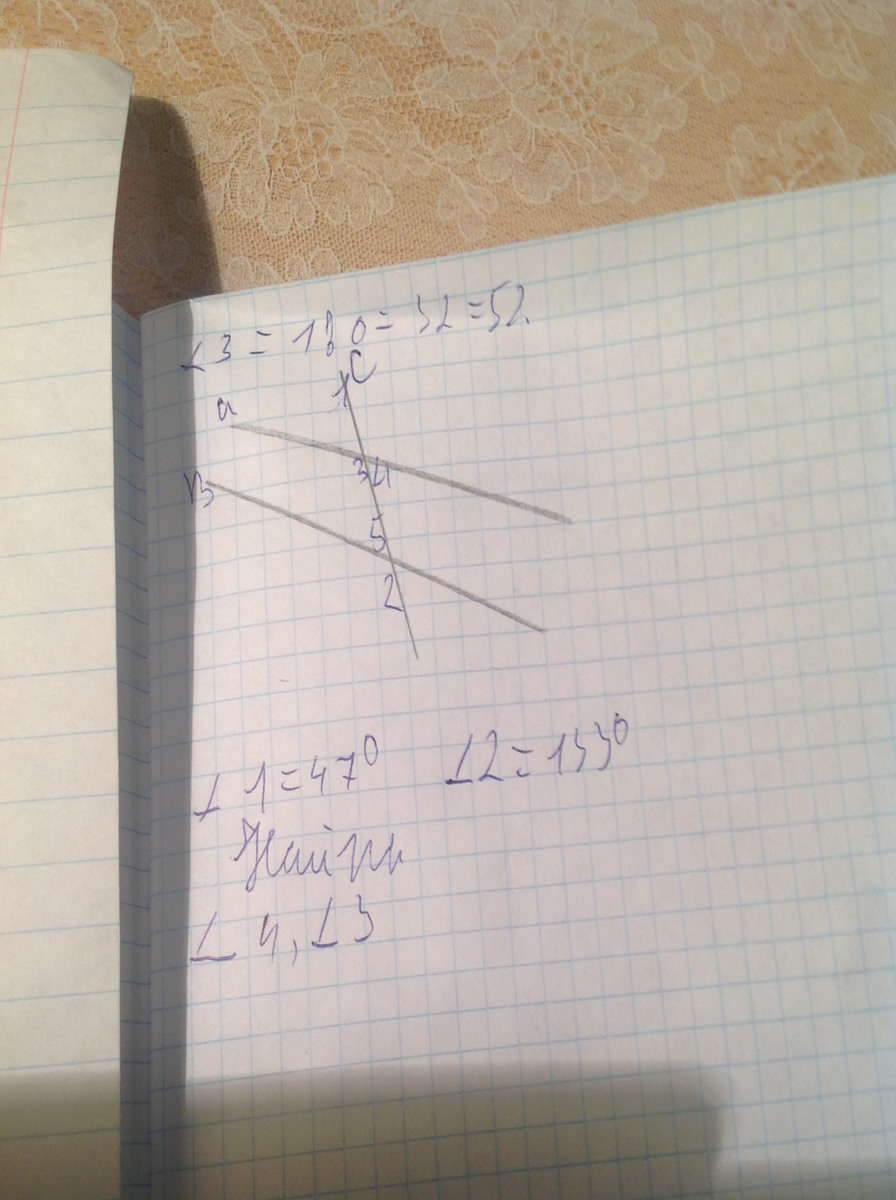 ∠3 = 180 = 32 = 52.
C
a
1
B
3 4
5
2
∠1 = 47° ∠2 = 133°
Найти
∠4, ∠3